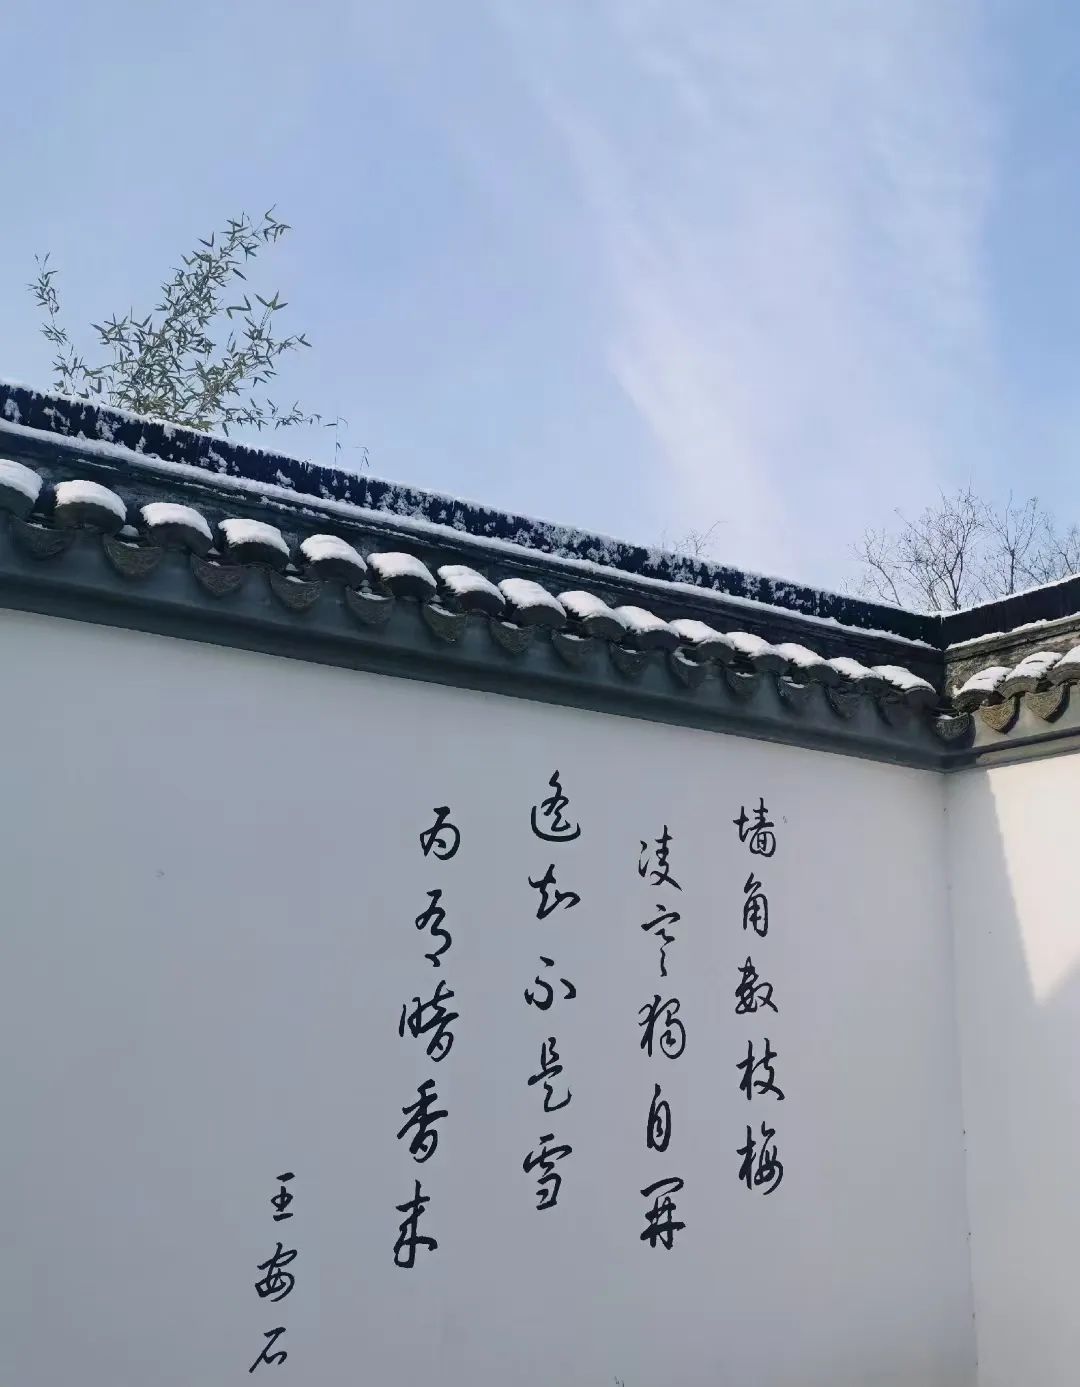 墙角数枝梅
凌寒独自开
遥知不是雪
为有暗香来
王安石